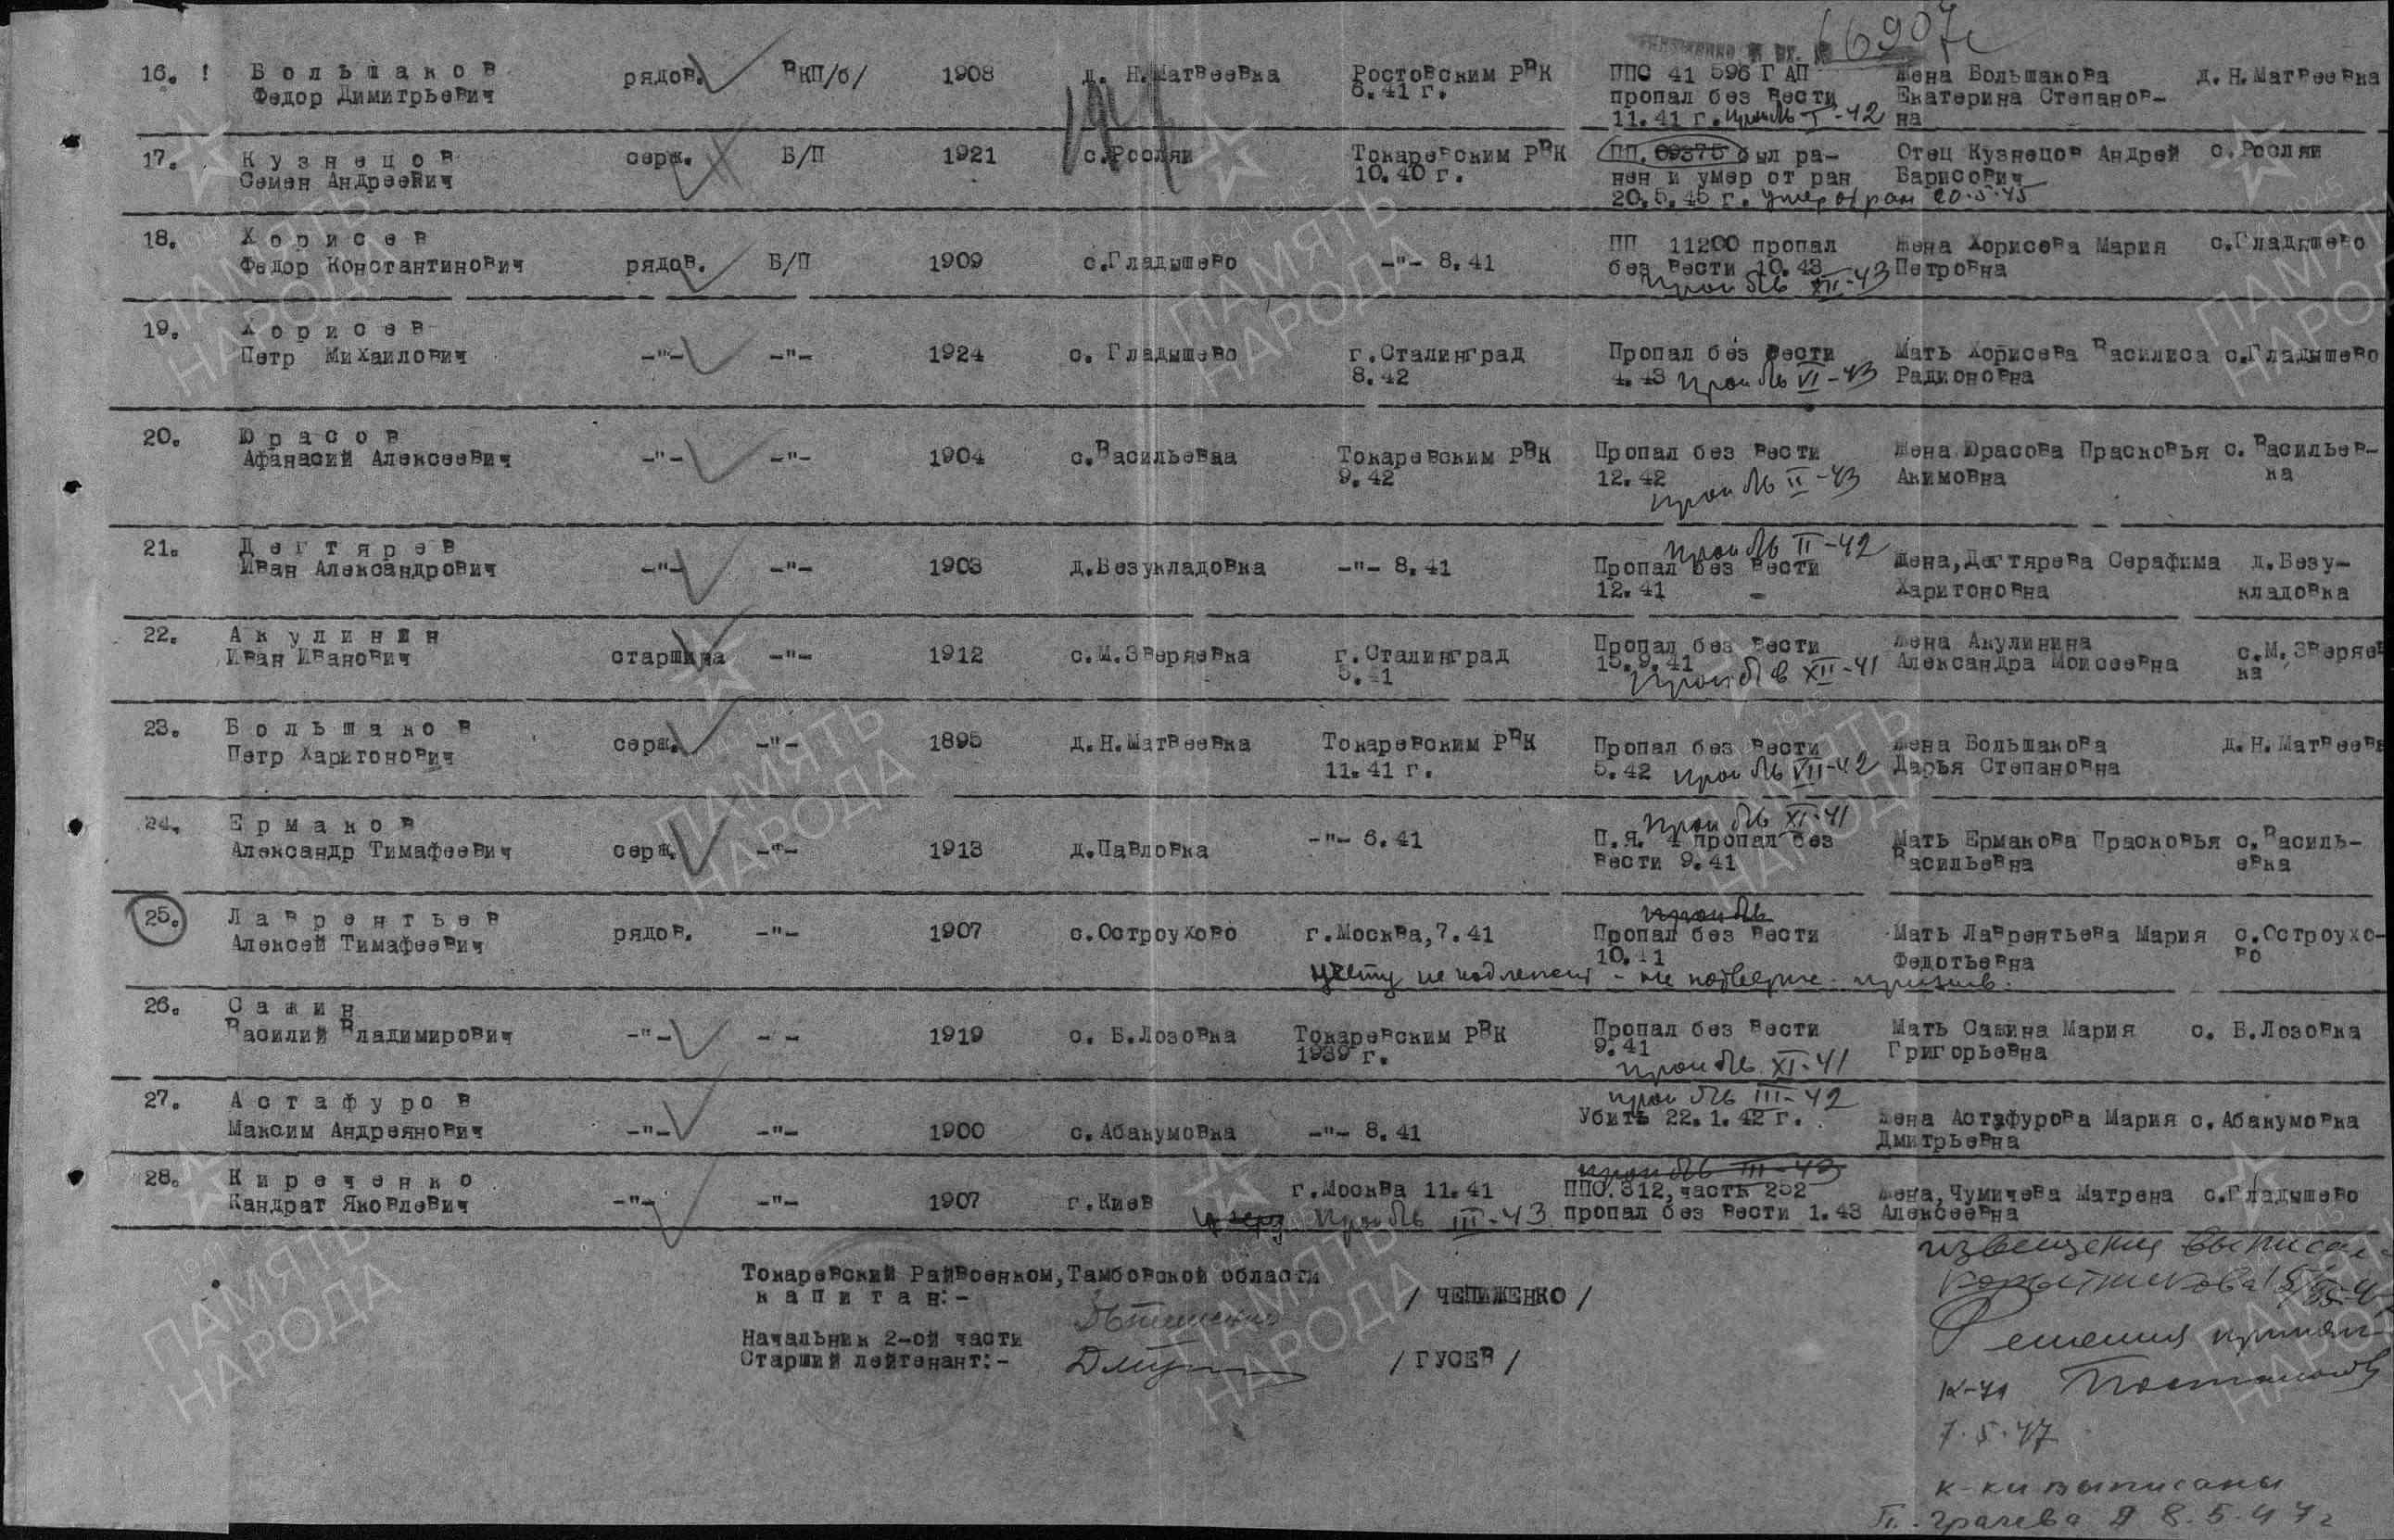 66907с
16. ! Большаков рядов. ВКП/б/ 1908 д. Н.Матвеевка Ростовским РВК ППС 41 596 ГАП Жена Большакова д. Н. Матвеевка
Федор Димитрьевич 6.41 г. пропал без вести Екатерина Степанов-
11.41 г. проп б/в I-42 на
17. Кузнецов серж. Б/П 1921 с.Росляи Токаревским РВК ПП. 09375 был ра- Отец Кузнецов Андрей с.Росляи
Семен Андреевич 10.40 г. нен и умер от ран Барисович
20.5.45 г. умер от ран 20.5.45
18. Хорисев ПП 11200 пропал Жена Хорисева Мария с.Гладышево
Федор Константинович рядов. Б/П 1909 с.Гладышево -"- 8.41 без вести 10.43 Петровна
проп б/в XII-43
19. Хорисев
Петр Михаилович -"- -"- 1924 с. Гладышево г.Сталинград Пропал без вести Мать Хорисева Василиса с.Гладышево
8.42 4.43 проп б/в VI-43 Радионовна
20. Юрасов
Афанасий Алексеевич -"- -"- 1904 с.Васильевка Токаревским РВК Пропал без вести Жена Юрасова Прасковья с. Васильев-
9.42 12.42 Акимовна ка
проп б/в II-43
21. Дегтярев проп б/в II-42
Иван Александрович -"- -"- 1903 д.Безукладовка -"- 8.41 Пропал без вести Жена,Дегтярева Серафима д. Безу-
12.41 Харитоновна кладовка
22. Акулинин Пропал без вести Жена Акулинина
Иван Иванович старшина -"- 1912 с.М.Зверяевка г.Сталинград 15.9.41 Александра Моисеевна с.М.Зверяев
5.41 проп б/в XII-41 ка
23. Большаков
Петр Харитонович серж. -"- 1895 д.Н.Матвеевка Токаревским РВК Пропал без вести Жена Большакова д.Н.Матвеевк
11.41 г. 5.42 проп б/в VII-42 Дарья Степановна
24. Ермаков проп б/в XI-41
Александр Тимафеевич серж. -"- 1913 д.Павловка -"- 6.41 П.Я. 4 пропал без Мать Ермакова Прасковья с.Василь-
вести 9.41 Васильевна евка
25. Лаврентьев проп б/в
Алексей Тимафеевич рядов. -"- 1907 с.Остроухово г.Москва,7.41 Пропал без вести Мать Лаврентьева Мария с.Остроухо-
10.41 Федотьевна во
учету не подлежит - не подтвержд. призыв.
26. Сажин
Василий Владимирович -"- - - 1919 с. Б.Лозовка Токаревским РВК Пропал без вести Мать Сажина Мария с. Б.Лозовка
1939 г. 9.41 Григорьевна
проп б/в XI-41
27. Астафуров проп б/в III-42
Максим Андреянович -"- -"- 1900 с.Абакумовка -"- 8.41 Убить 22.1.42 г. Жена Астафурова Мария с.Абакумовка
Дмитрьевна
28. Киреченко проп б/в III-43
Кандрат Яковлевич -"- -"- 1907 г.Киев г.Москва 11.41 ППС.312,часть 252 Жена,Чумичева Матрена с.Гладышево
проп б/в III-43 пропал без вести 1.43 Алексеевна
Токаревский Райвоенком,Тамбовской области
капитан:- / ЧЕПИЖЕНКО /
Начальник 2-ой части
Старший лейтенант:- / ГУСЕВ /
извещения выписал
Решения принял
К-н
7.5.47
к-ки выписаны
Грачева 8.5.47г
ПАМЯТЬ
НАРОДА